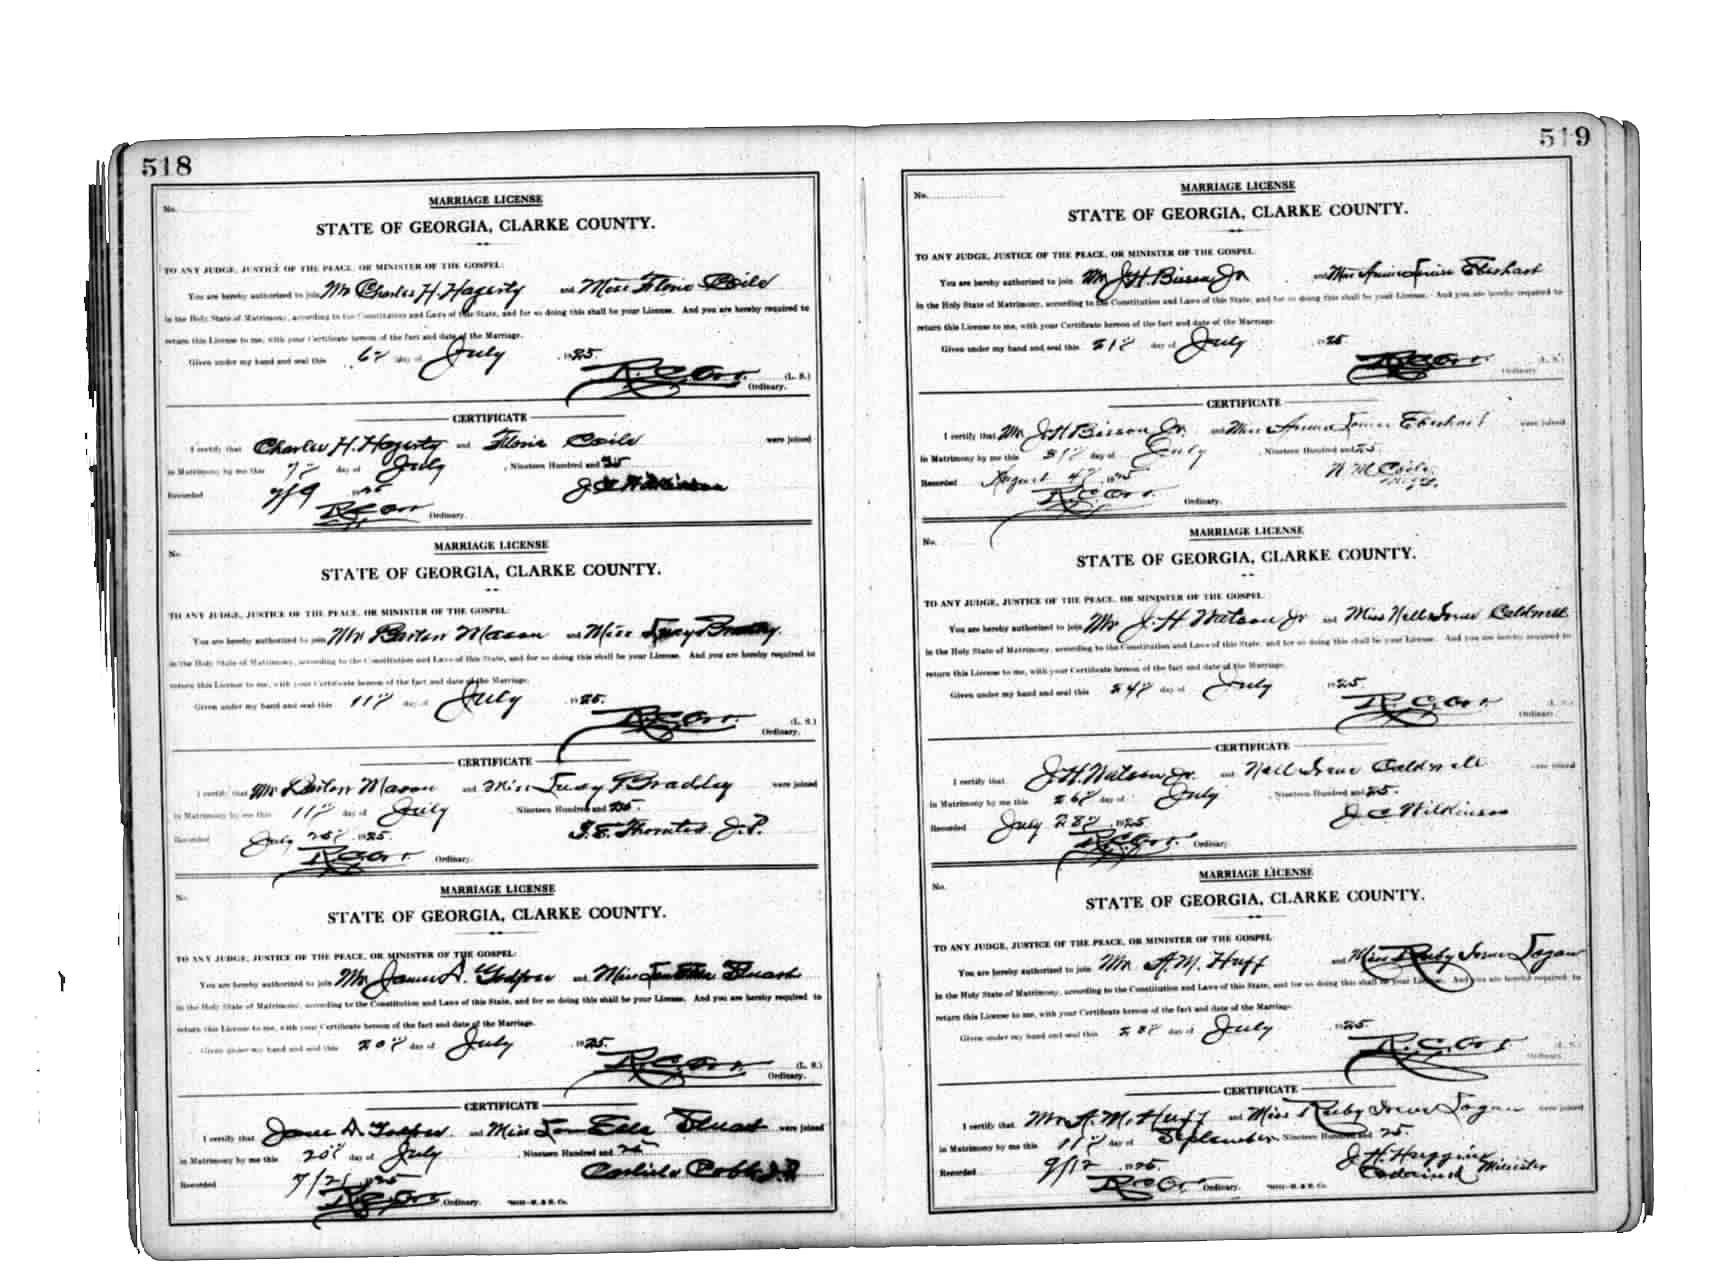 518
No.
MARRIAGE LICENSE
STATE OF GEORGIA, CLARKE COUNTY.
TO ANY JUDGE, JUSTICE OF THE PEACE, OR MINISTER OF THE GOSPEL:
You are hereby authorized to join Mr Charles H. Hagerty and Miss Coile
in the Holy State of Matrimony, according to the Constitution and Laws of this State, and for so doing this shall be your License. And you are hereby required to
return this License to me, with your Certificate hereon of the fact and date of the Marriage.
Given under my hand and seal this 6th day of July 1925.
R. C. Orr. (L. S.)
Ordinary.
CERTIFICATE
I certify that Charles H. Hagerty and Coile were joined
in Matrimony by me this 7th day of July, Nineteen Hundred and 25
Recorded 7/9 1925 J C Wilkinson
R C Orr Ordinary.
No.
MARRIAGE LICENSE
STATE OF GEORGIA, CLARKE COUNTY.
TO ANY JUDGE, JUSTICE OF THE PEACE, OR MINISTER OF THE GOSPEL:
You are hereby authorized to join Mr Mason and Miss Bradley.
in the Holy State of Matrimony, according to the Constitution and Laws of this State, and for so doing this shall be your License. And you are hereby required to
return this License to me, with your Certificate hereon of the fact and date of the Marriage.
Given under my hand and seal this 11th day of July 1925.
R. C. Orr. (L. S.)
Ordinary.
CERTIFICATE
I certify that Mr Mason and Miss Bradley were joined
in Matrimony by me this 11th day of July, Nineteen Hundred and 25.
Recorded July 25th 1925. J. P.
R C Orr. Ordinary.
No.
MARRIAGE LICENSE
STATE OF GEORGIA, CLARKE COUNTY.
TO ANY JUDGE, JUSTICE OF THE PEACE, OR MINISTER OF THE GOSPEL:
You are hereby authorized to join Mr James A. and Miss
in the Holy State of Matrimony, according to the Constitution and Laws of this State, and for so doing this shall be your License. And you are hereby required to
return this License to me, with your Certificate hereon of the fact and date of the Marriage.
Given under my hand and seal this 20th day of July 1925.
R. C. Orr. (L. S.)
Ordinary.
CERTIFICATE
I certify that and Miss were joined
in Matrimony by me this 20th day of July, Nineteen Hundred and 25
Recorded 1925 Cobb J. P.
R C Orr Ordinary.
519
No.
MARRIAGE LICENSE
STATE OF GEORGIA, CLARKE COUNTY.
TO ANY JUDGE, JUSTICE OF THE PEACE, OR MINISTER OF THE GOSPEL:
You are hereby authorized to join Mr J. H. Bisson Jr. and Miss Annie Louise Eberhart
in the Holy State of Matrimony, according to the Constitution and Laws of this State, and for so doing this shall be your License. And you are hereby required to
return this License to me, with your Certificate hereon of the fact and date of the Marriage.
Given under my hand and seal this 21st day of July 1925
R C Orr. (L. S.)
Ordinary
CERTIFICATE
I certify that Mr J. H Bisson Jr. and Miss Annie Louise Eberhart were joined
in Matrimony by me this day of July, Nineteen Hundred and 25.
Recorded August 4th 1925 Coile
R. C. Orr. Ordinary.
No.
MARRIAGE LICENSE
STATE OF GEORGIA, CLARKE COUNTY.
TO ANY JUDGE, JUSTICE OF THE PEACE, OR MINISTER OF THE GOSPEL:
You are hereby authorized to join Mr J. H Watson Jr and Miss Nell Irene Caldwell
in the Holy State of Matrimony, according to the Constitution and Laws of this State, and for so doing this shall be your License. And you are hereby required to
return this License to me, with your Certificate hereon of the fact and date of the Marriage.
Given under my hand and seal this 24th day of July 1925.
R. C. Orr (L. S.)
Ordinary.
CERTIFICATE
I certify that J. H. Watson Jr. and Nell Irene Caldwell were joined
in Matrimony by me this 26th day of July, Nineteen Hundred and 25.
Recorded July 28th 1925 J C Wilkinson
R. C. Orr. Ordinary.
No.
MARRIAGE LICENSE
STATE OF GEORGIA, CLARKE COUNTY.
TO ANY JUDGE, JUSTICE OF THE PEACE, OR MINISTER OF THE GOSPEL
You are hereby authorized to join Mr A. M. Huff and Miss Ruby Irene Logan
in the Holy State of Matrimony, according to the Constitution and Laws of this State, and for so doing this shall be your License. And you are hereby required to
return this License to me, with your Certificate hereon of the fact and date of the Marriage.
Given under my hand and seal this 28th day of July 1925.
R. C. Orr (L. S.)
Ordinary.
CERTIFICATE
I certify that Mr A. M. Huff and Miss Ruby Irene Logan were joined
in Matrimony by me this 11th day of September, Nineteen Hundred and 25.
Recorded 9/12 1925. J. H. Huggins
R C Orr. Ordinary. Minister